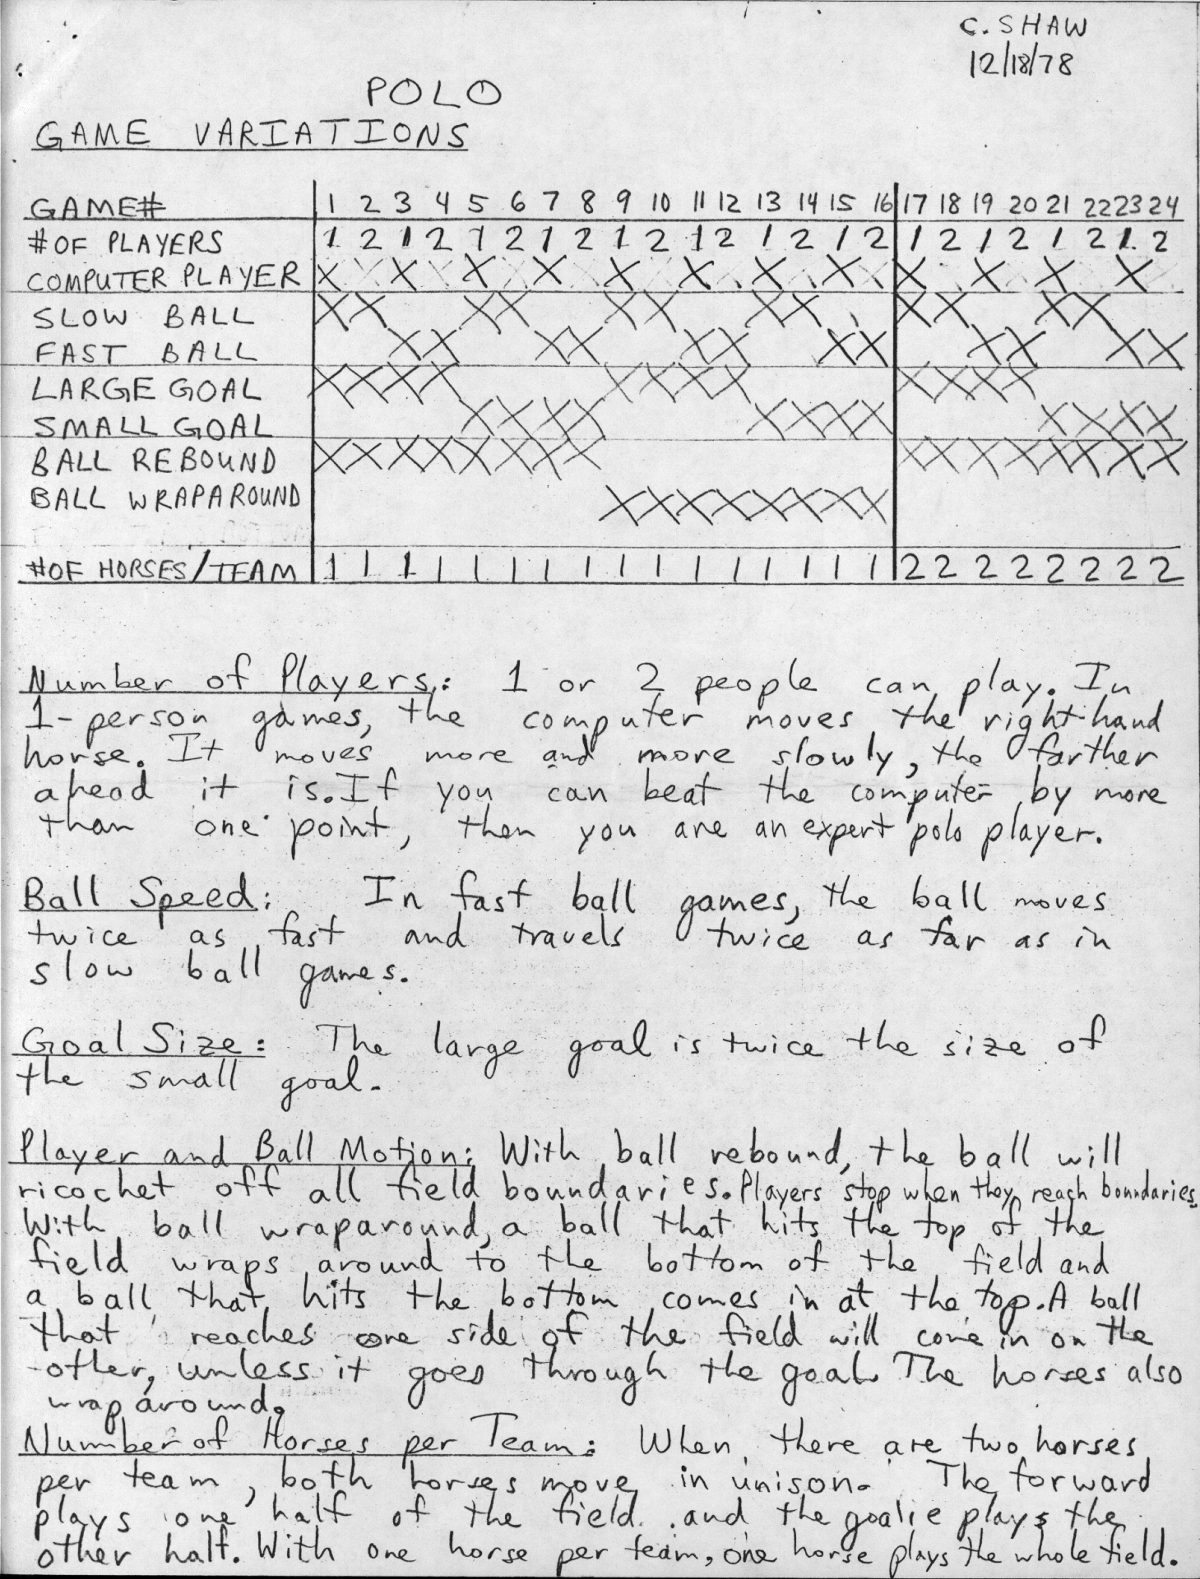 C. SHAW
12/18/78
POLO
GAME VARIATIONS
GAME# 1 2 3 4 5 6 7 8 9 10 11 12 13 14 15 16 17 18 19 20 21 22 23 24
#OF PLAYERS 1 2 1 2 1 2 1 2 1 2 1 2 1 2 1 2 1 2 1 2 1 2 1 2
COMPUTER PLAYER X X X X X X X X X X X X
SLOW BALL X X X X X X X X X X X X
FAST BALL X X X X X X X X X X X X
LARGE GOAL X X X X X X X X X X X X
SMALL GOAL X X X X X X X X X X X X
BALL REBOUND X X X X X X X X X X X X X X X X
BALL WRAPAROUND X X X X X X X X
#OF HORSES/TEAM 1 1 1 1 1 1 1 1 1 1 1 1 1 1 1 1 2 2 2 2 2 2 2 2
Number of Players: 1 or 2 people can play. In
1-person games, the computer moves the right-hand
horse. It moves more and more slowly, the farther
ahead it is. If you can beat the computer by more
than one point, then you are an expert polo player.
Ball Speed: In fast ball games, the ball moves
twice as fast and travels twice as far as in
slow ball games.
Goal Size: The large goal is twice the size of
the small goal.
Player and Ball Motion: With ball rebound, the ball will
ricochet off all field boundaries. Players stop when they reach boundaries.
With ball wraparound, a ball that hits the top of the
field wraps around to the bottom of the field and
a ball that hits the bottom comes in at the top. A ball
that reaches one side of the field will come in on the
other, unless it goes through the goal. The horses also
wrap around.
Number of Horses per Team: When there are two horses
per team, both horses move in unison. The forward
plays one half of the field and the goalie plays the
other half. With one horse per team, one horse plays the whole field.